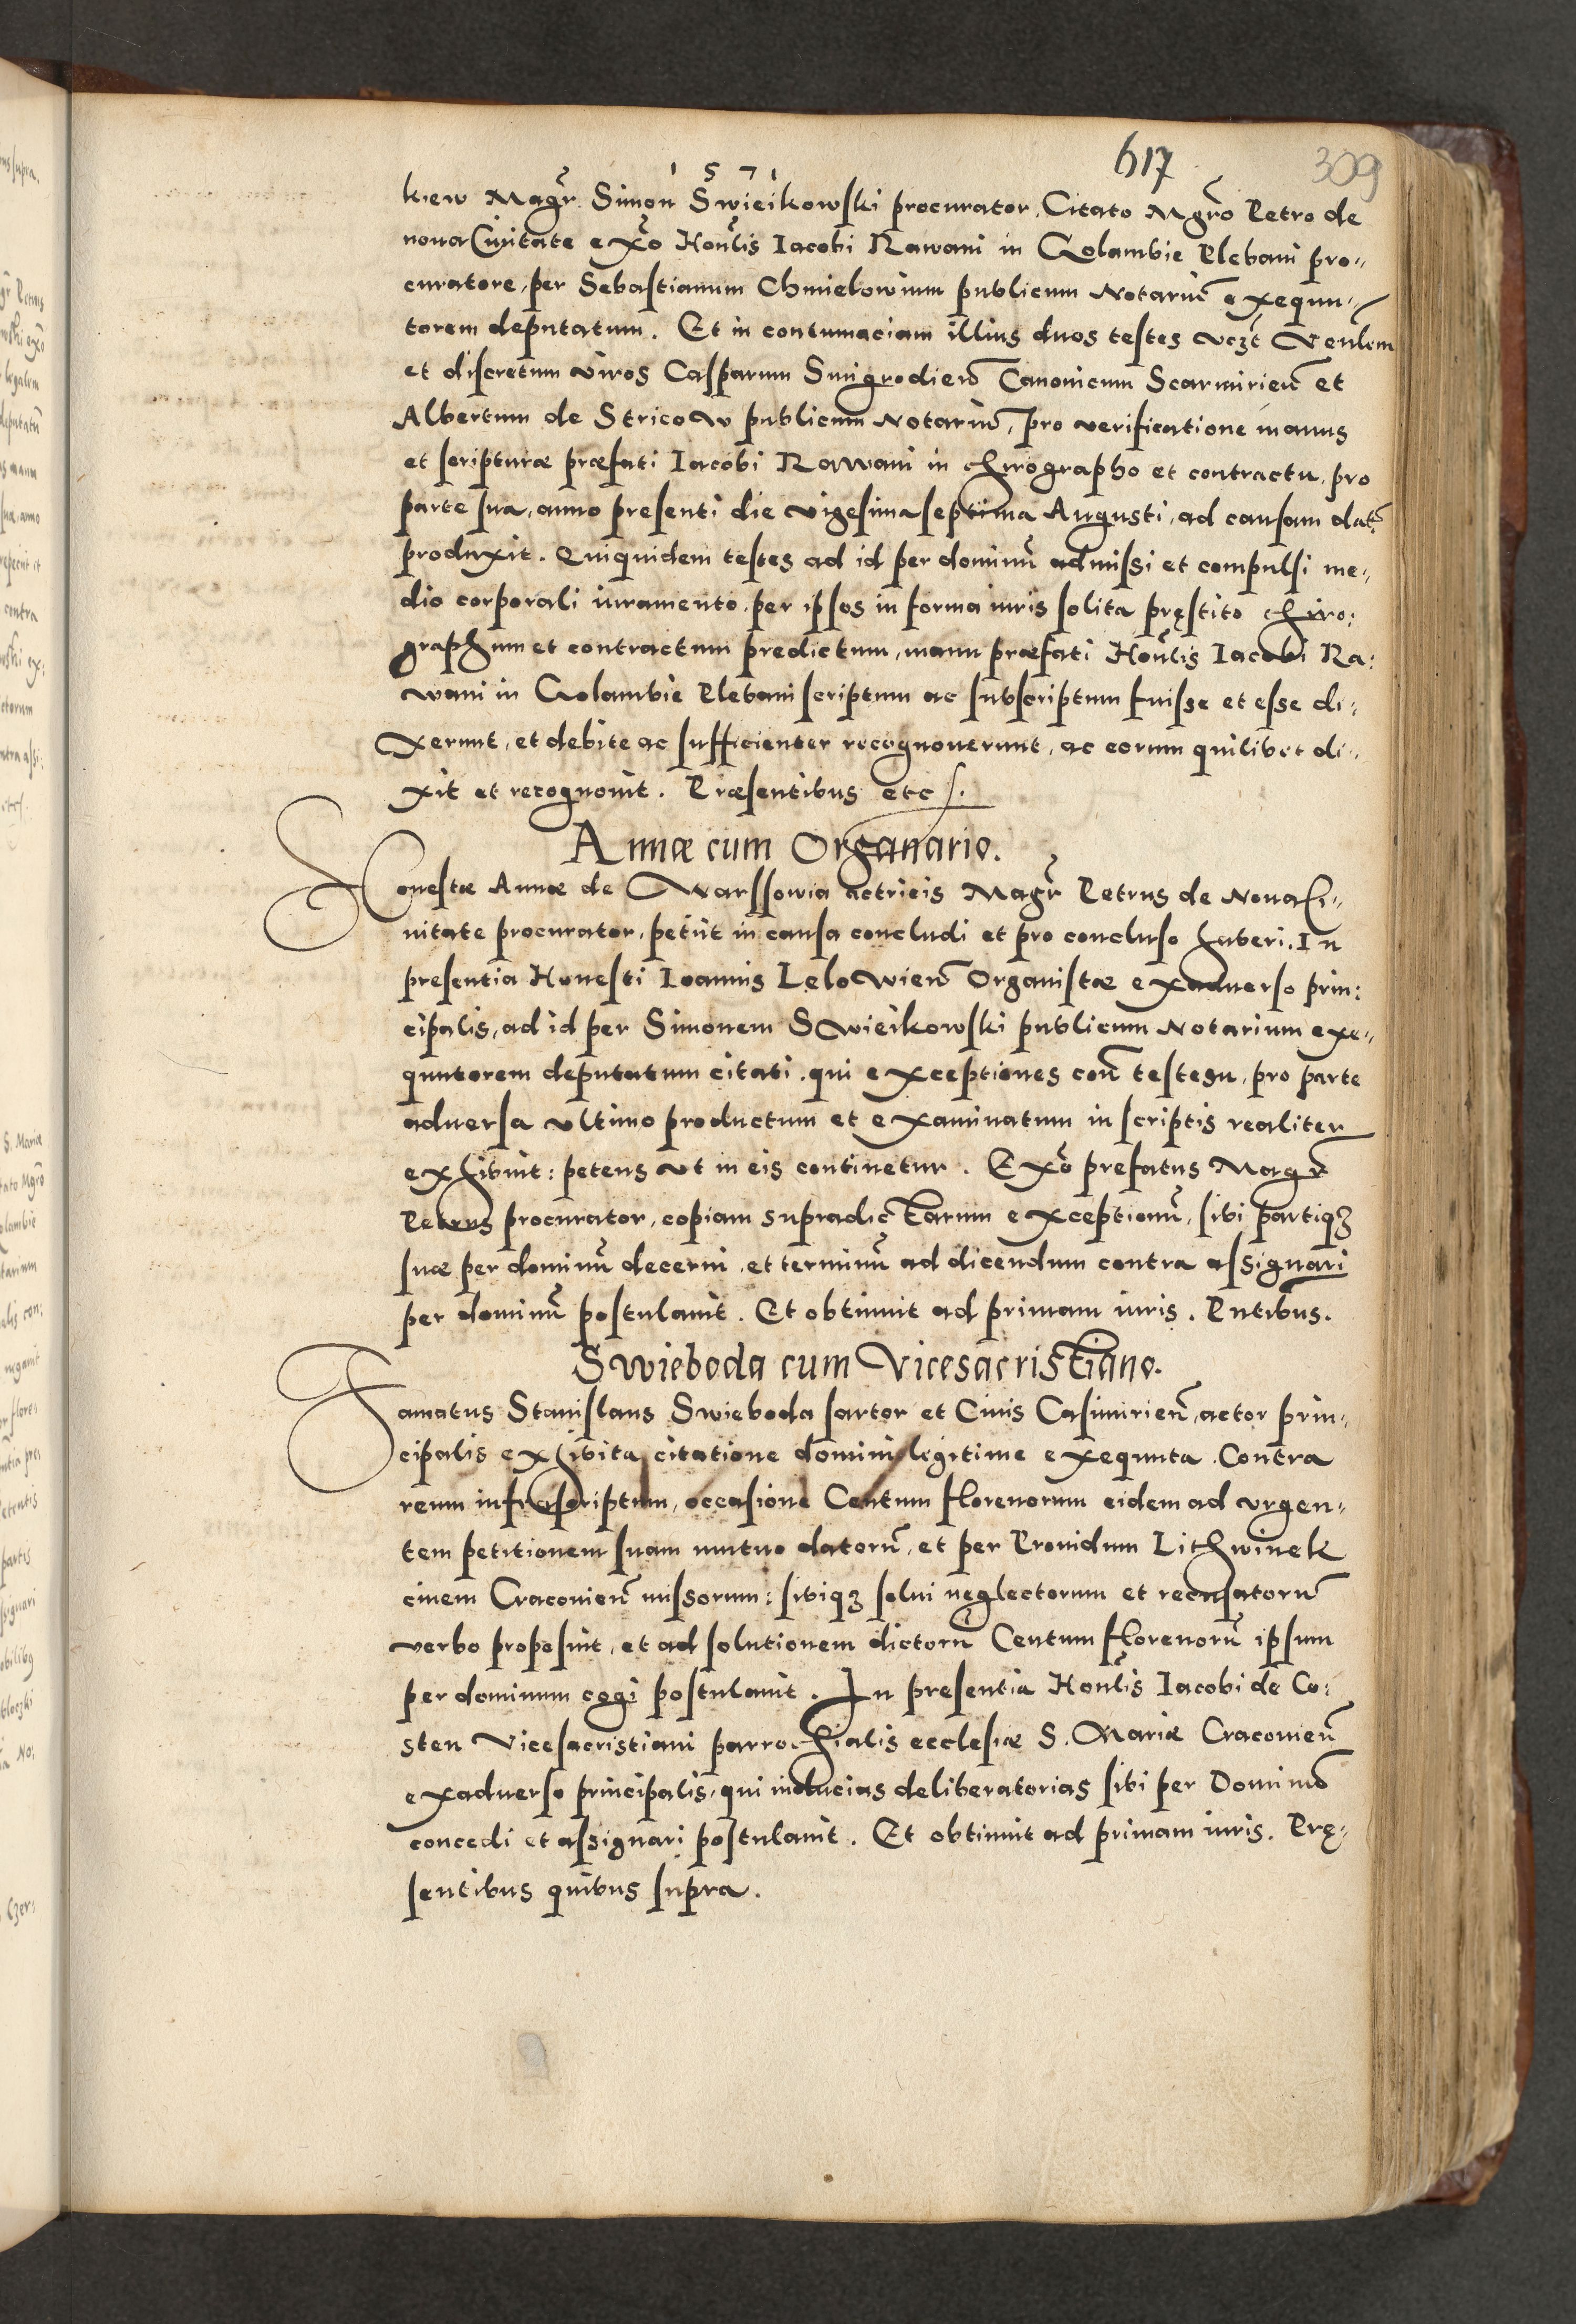 617
309
1571
kiew Magr̃ Simon Swieikowski procurator, Citato Mgr̃o Petro de
noua Ciuitate exõ Honᷓlis Iacobi Rawani in Golambie Plebani pro-
curatore, per Sebastianum Chmielowium publicum Notariũ exequu-
torem deputatum. Et in contumaciam illius duos testes vczt̃ Venᷓlem
et discretum viros Casparum Smigrodień Canonicum Scarmirień et
Albertum de Stricow publicum Notariũ, pro verificatione manus
et scripturæ præfati Iacobi Rawani in chirographo et contractu, pro
parte sua, anno presenti die vigesima septima Augusti, ad causam dat̃
produxit. Quiquidem testes ad id per dominũ admissi et compulsi me-
dio corporali iuramento, per ipsos in forma iuris solita pręstito chiro:
graphum et contractum predictum, manu præfati Honᷓlis Iacobi Ra:
wani in Golambie Plebani scriptum ac subscriptum fuisse et esse di:
xerunt, et debite ac sufficienter recognouerunt, ac eorum quilibet di-
xit et recognouit. Præsentibus etc.
Annæ cum Organario.
Honestæ Annæ de Warssowia actricis Magr̃ Petrus de Noua Ci-
uitate procurator, petiit in causa concludi et pro concluso haberi. In
presentia Honesti Ioannis Lelowień Organistæ exaduerso prin:
cipalis, ad id per Simonem Swieikowski publicum Notarium exe-
quutorem deputatum citati, qui exceptiones coñ testem, pro parte
aduersa vltimo productum et examinatum in scriptis realiter
exhibuit: petens vt in eis continetur. Exõ prefatus Magr̃
Petrus procurator, copiam supradictarum exceptionũ, sibi partiqꝫ
suæ per dominũ decerni, et terminũ ad dicendum contra assignari
per dominũ postulauit. Et obtinuit ad primam iuris. Pñtibus.
Swieboda cum Vicesacristiano.
Famatus Stanislaus Swieboda sartor et Ciuis Casimirień, actor prin-
cipalis exhibita citatione domini legitime exequuta. Contra
reum infrascriptum, occasione Centum florenorum eidem ad vrgen-
tem petitionem suam mutuo datorũ, et per Prouidum Lichwinek
ciuem Cracovień missorum: sibiqꝫ solui neglectorum et recusatorũ
verbo proposuit, et ad solutionem dictorũ Centum florenorũ ipsum
per dominum cogi postulauit. In presentia Honᷓlis Iacobi de Co:
sten Vicesacristiani parrochialis ecclesiæ S. Mariæ Cracovień
exaduerso principalis, qui inducias deliberatorias sibi per Dominũ
concedi et assignari postulauit. Et obtinuit ad primam iuris. Prę-
sentibus quibus supra.